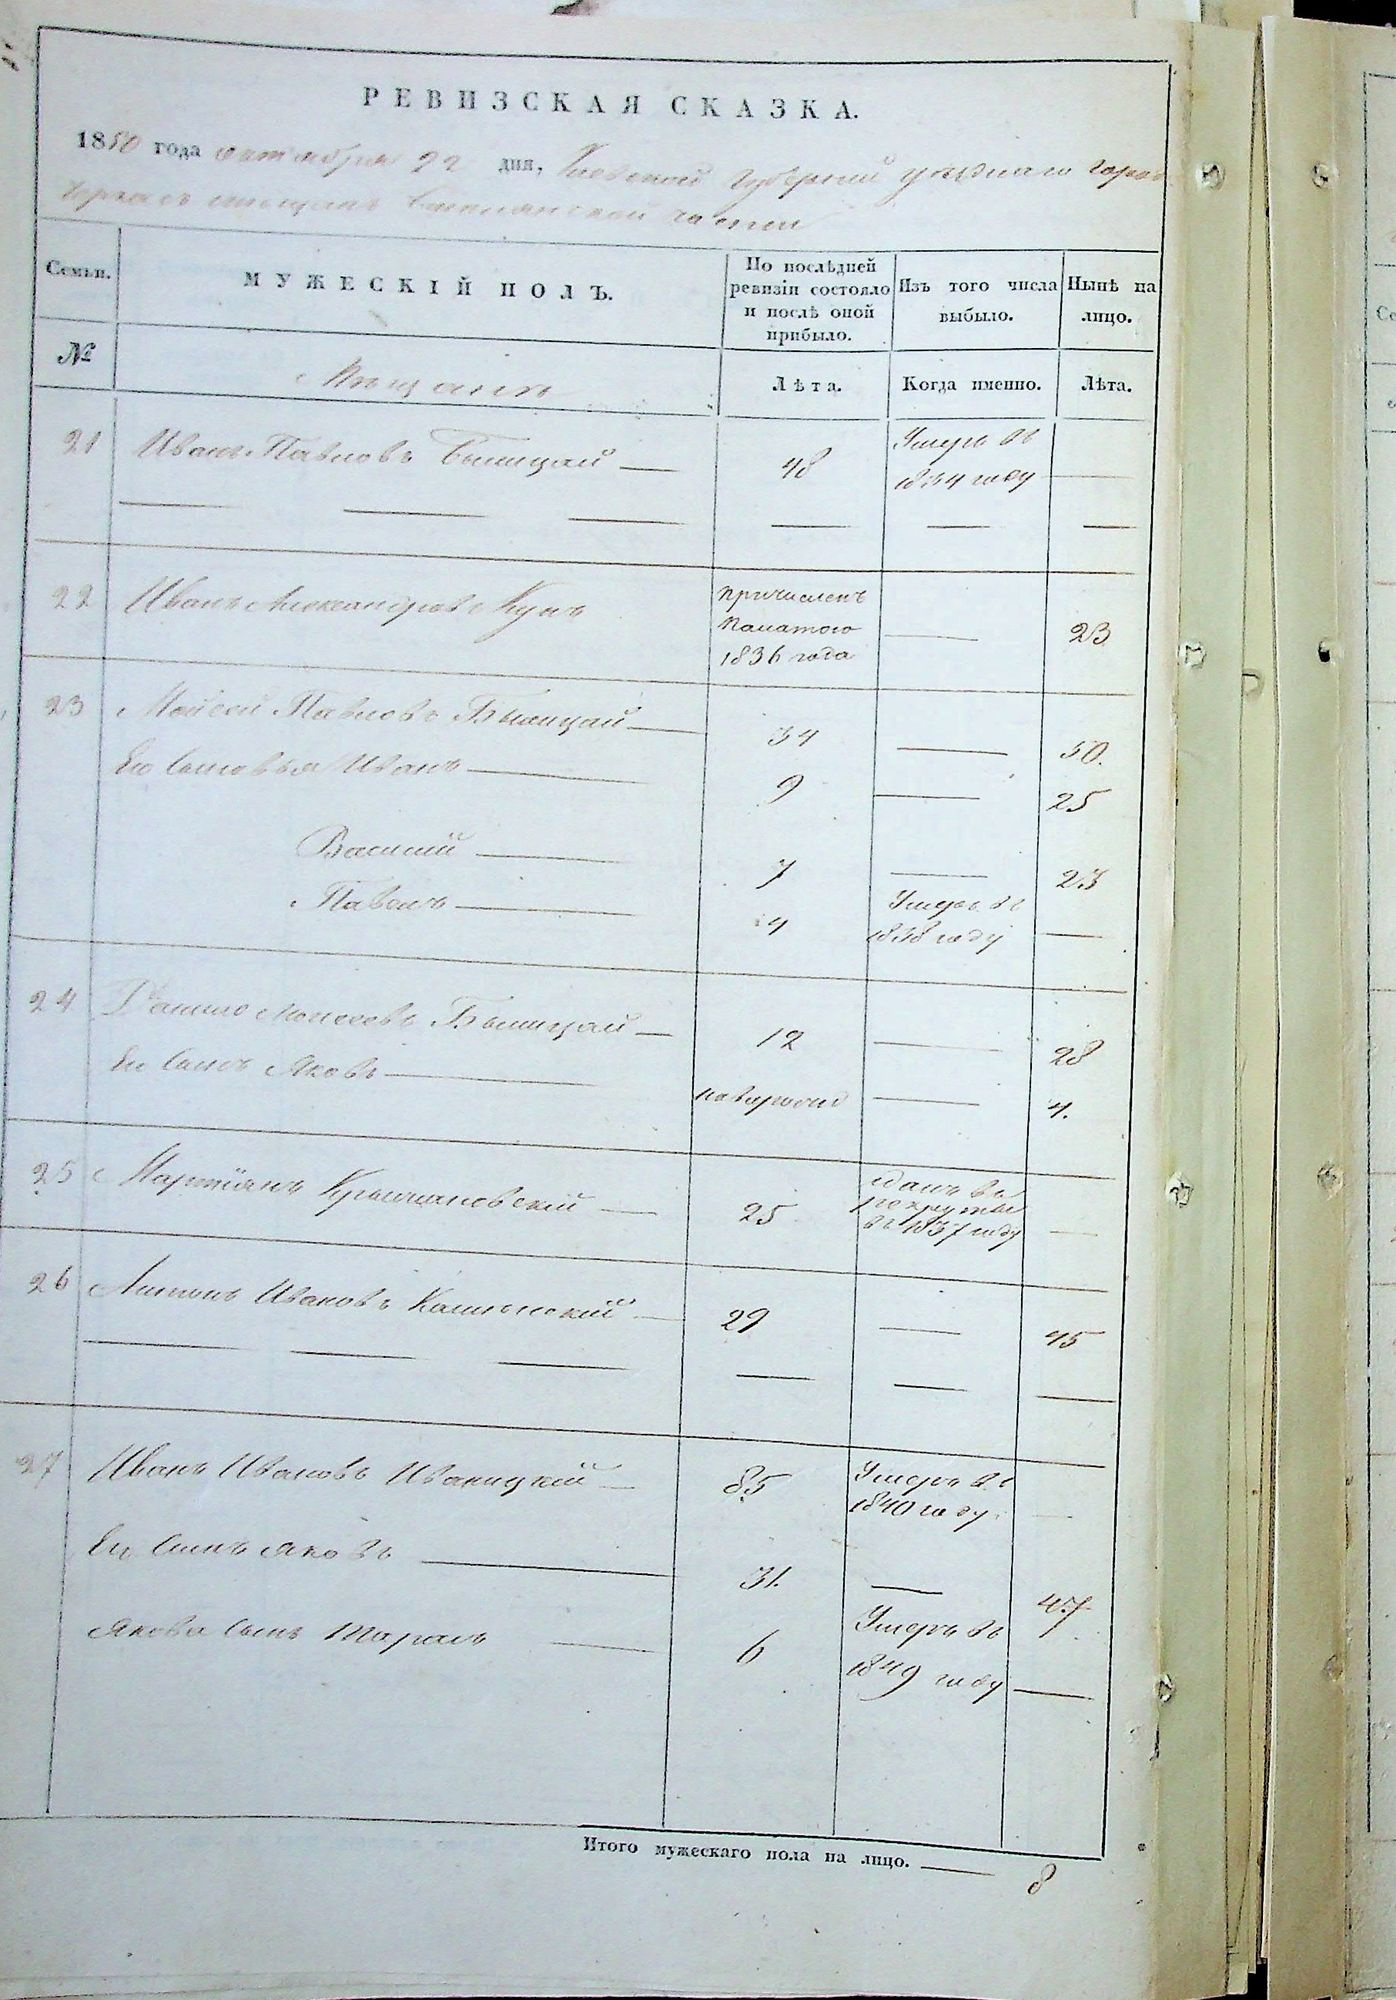 РЕВИЗСКАЯ СКАЗКА.
1850 года октября 22 дня, Киевской губернии уезднаго города
Черкасъ мещанъ
Семьи.
МУЖЕСКІЙ ПОЛЪ.
По послѣдней ревизіи состояло и послѣ оной прибыло.
Изъ того числа выбыло.
Нынѣ на лицо.
№
Мещанъ
Лѣта.
Когда именно.
Лѣта.
21 Иванъ Павловъ 48 Умеръ въ
1844 году
22 Иванъ Александровъ Кунъ причисленъ
1836 года 23
23 Мойсей Павловъ 34 50.
Его сыновья Иванъ 9 25
Василий 7 23
Павелъ 4 Умеръ въ
1838 году
24 Данило Моисеевъ 12 28
Его сынъ Яковъ новорожд 4.
25 Мартіянъ 25 сданъ въ
рекруты
въ 1837 году
26 Антонъ Ивановъ 29 45
27 Иванъ Ивановъ Иваницкій 85 Умеръ въ
1840 году.
Его сынъ Яковъ 31. 47
Якова сынъ Тарасъ 6 Умеръ въ
1849 году
Итого мужескаго пола на лицо. 8